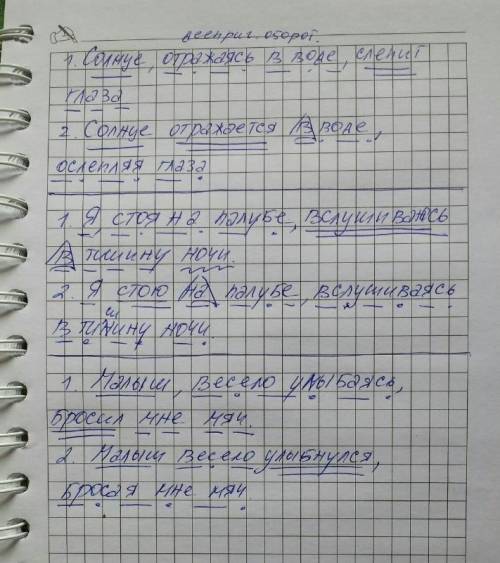 дееприч. оборот.
1. Солнце, отражаясь в воде, слепит
глаза
2. Солнце отражается в воде,
ослепляя глаза
1. Я, стоя на палубе, вслушиваюсь
в тишину ночи.
2. Я стою на палубе, вслушиваясь
в тишину ночи.
1. Малыш, весело улыбаясь,
бросил мне мяч.
2. Малыш весело улыбнулся,
бросая мне мяч.